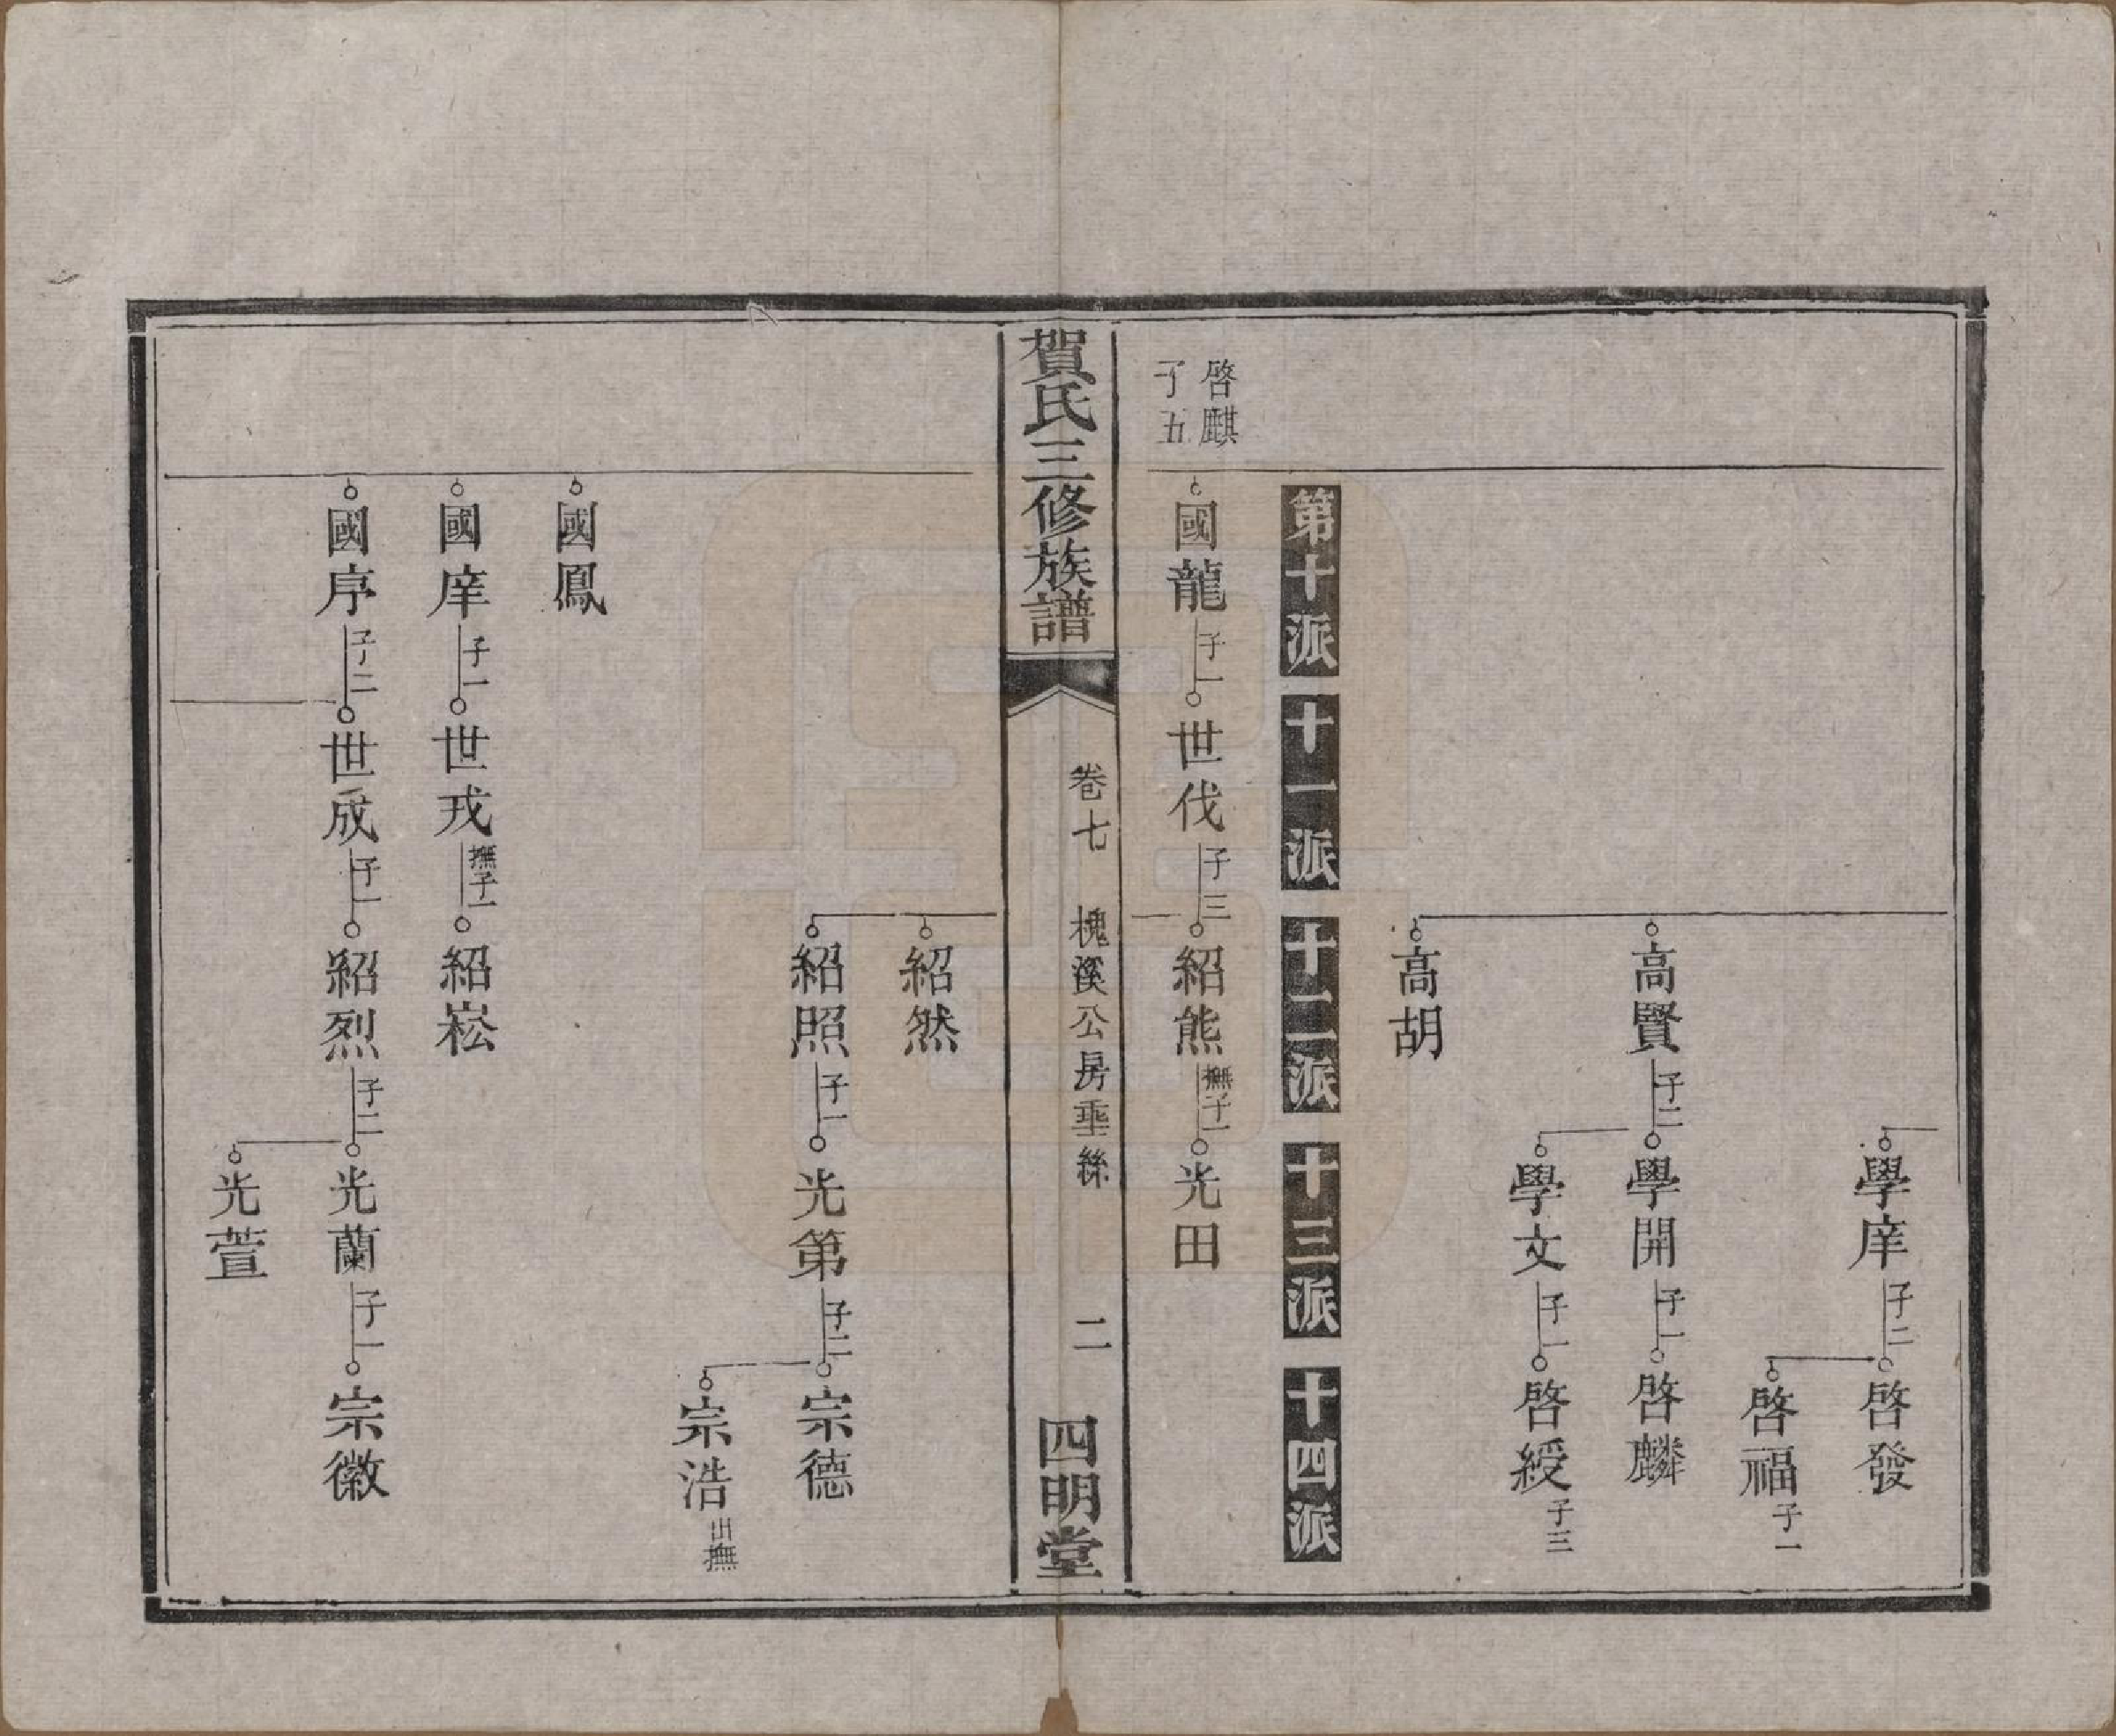 學庠 子二 啓發
啓福 子一
高賢 子二 學開 子一 啓麟
學文 子一 啓綬 子三
高胡
第十派 十一派 十二派 十三派 十四派
啓麒
子五
國龍 子一 世伐 子三 紹熊 撫子一 光田
賀氏三修族譜 卷七 槐溪公房垂絲 二 四明堂
紹然
紹照 子一 光第 子二 宗德
宗浩 出撫
國鳳
國庠 子一 世戎 撫子一 紹崧
國序 子二 世成 子一 紹烈 子二 光蘭 子一 宗徽
光萱